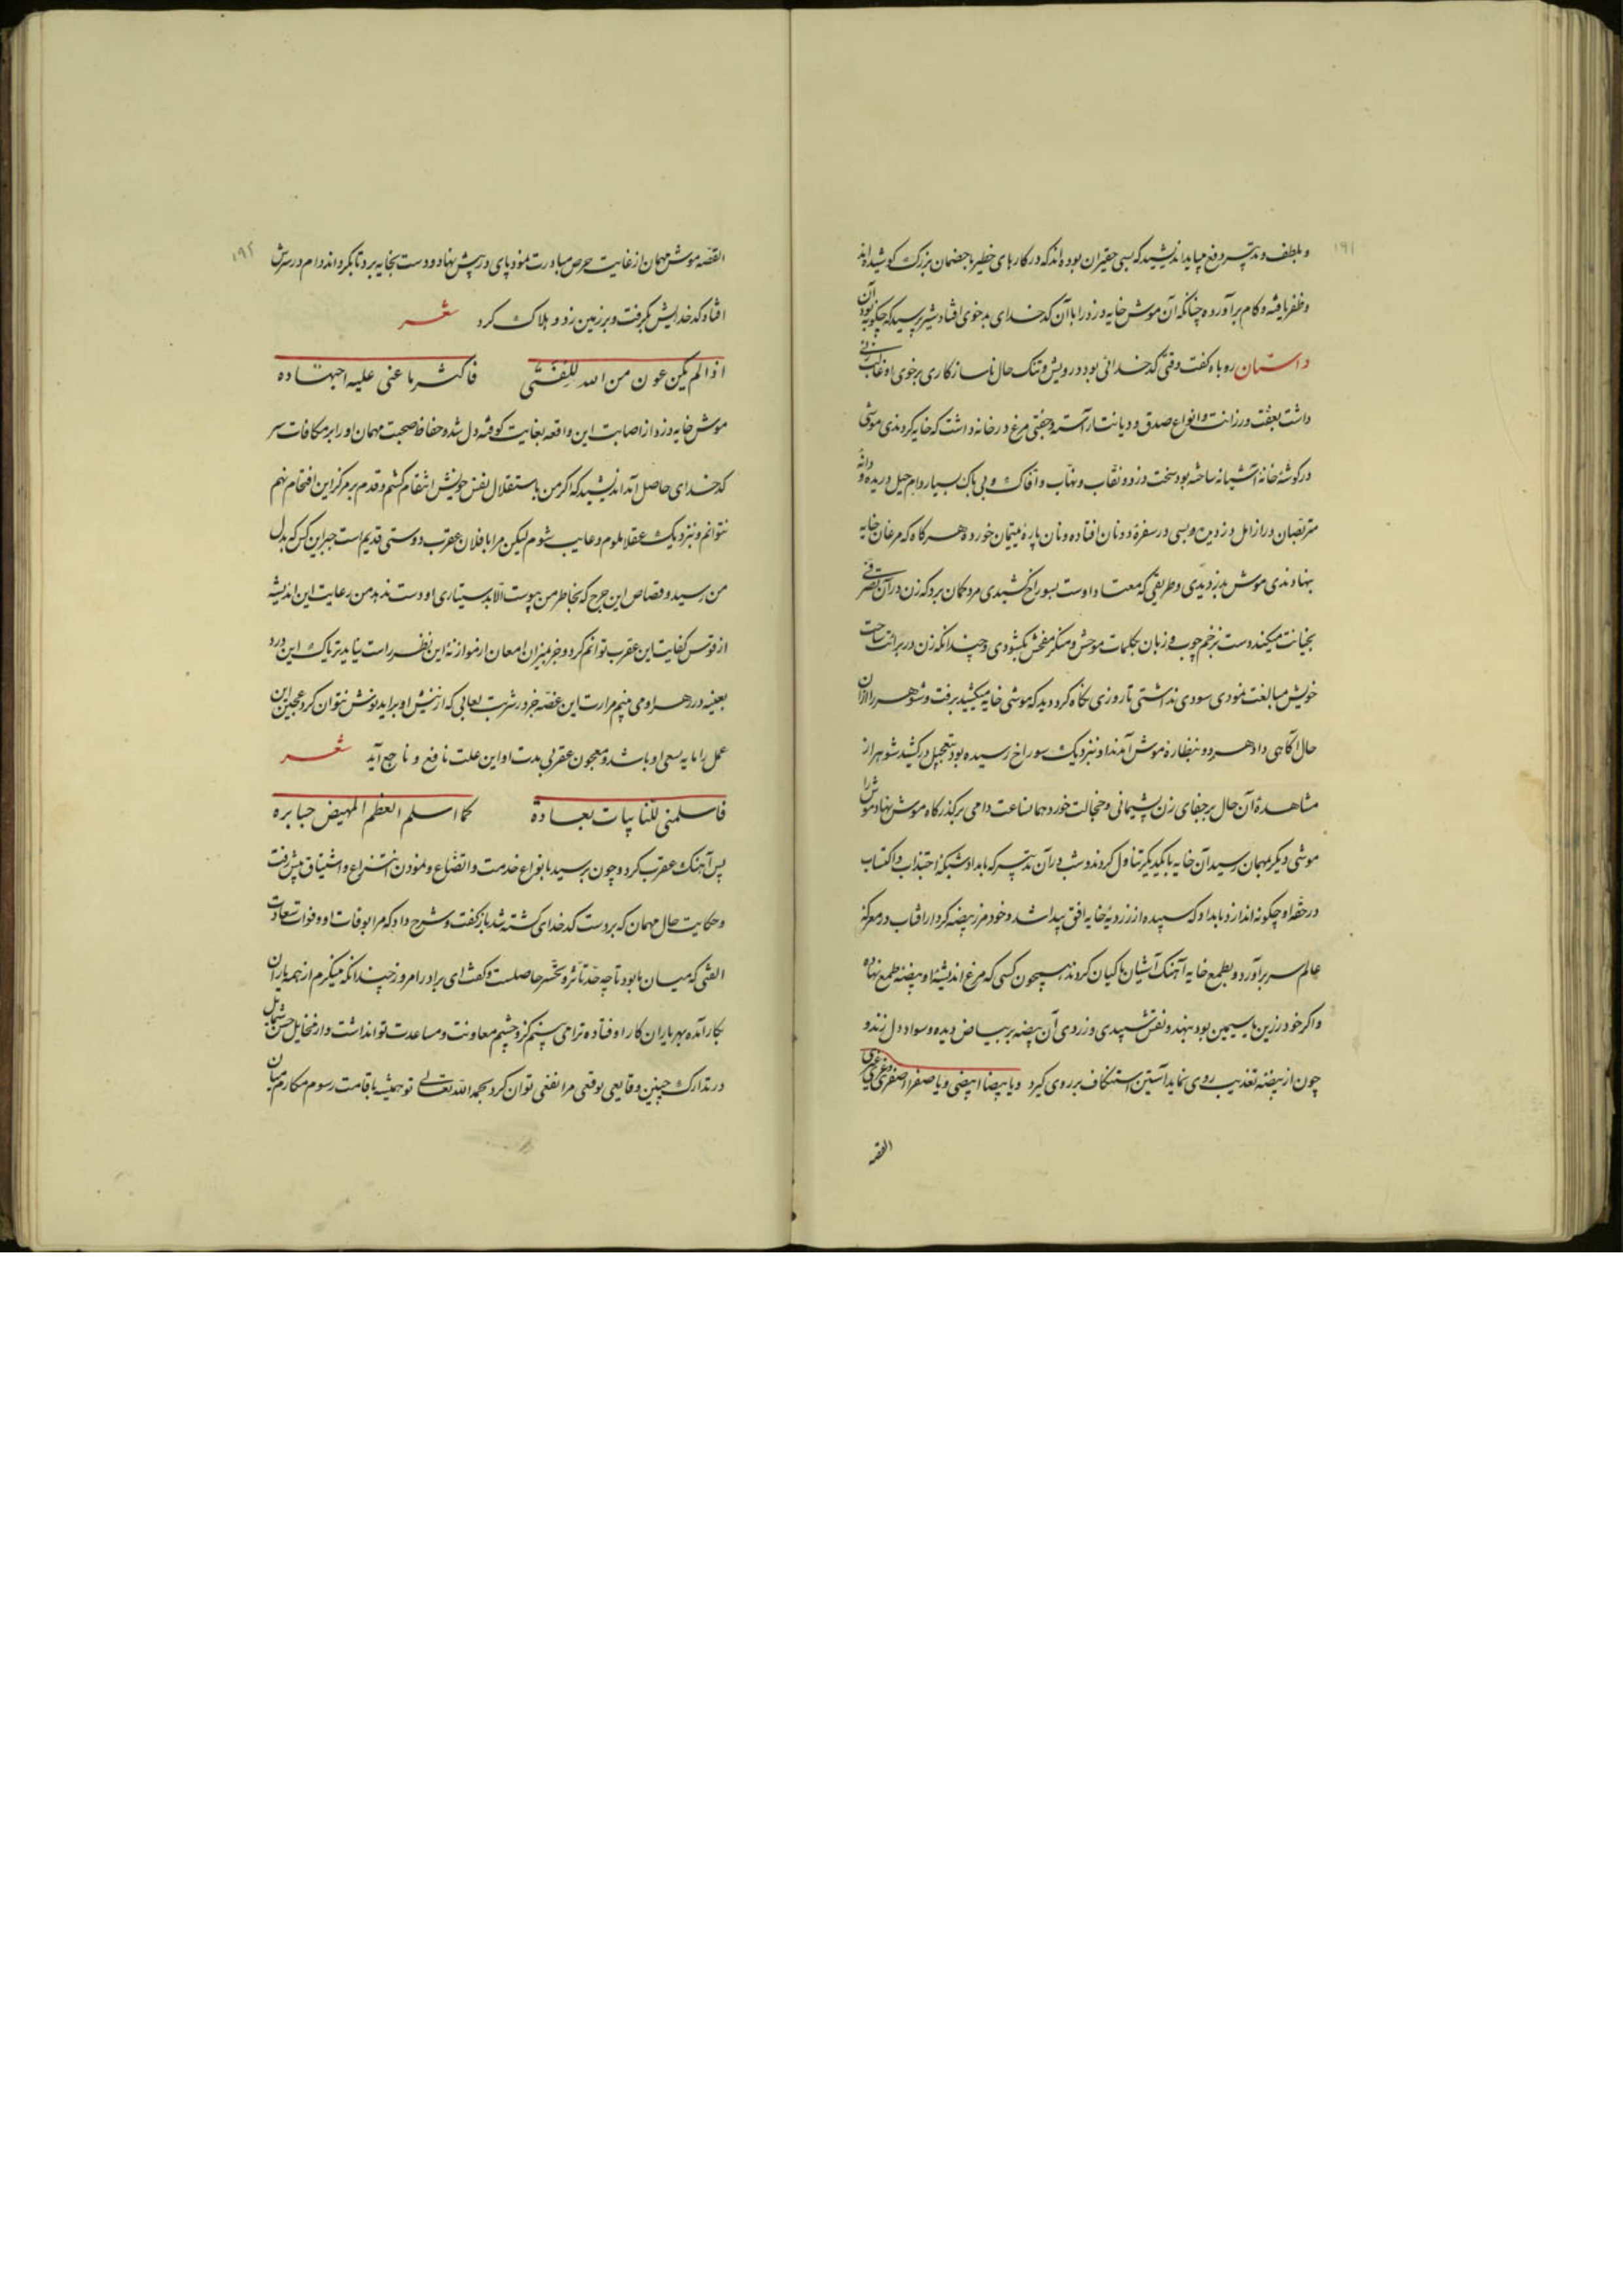 ۱۹۱
و بلطف و تدبیر دفع میباید اندیشید که بسی حقیران بوده‌اند که در کارهای خطیر با خصمان بزرگ کوشیده‌اند
و ظفر یافته و کام برآورده چنانکه آن موش خایه دزد را با آن کدخدای بدخوی افتاد شیر پرسید که چگونه بود آن
داستان روباه گفت وقتی کدخدائی بود درویش و تنک حال ناسازکاری بر خوی او غالب زنی
داشت بعفت و رزانت و انواع صدق و دیانت آراسته و جفتی مرغ در خانه داشت که خایه کردندی موشی
در کوشهٔ خانه آشیانه ساخته بود سخت دزد و نقاب و نهاب و افاک و بی باک بسیار دام حیل دریده و دانهٔ
متربصان دراز امل دزدیده و بسی در سفرهٔ دونان افتاده و نان پارهٔ یتیمان خورده هر کاه که مرغان خایه
بنهادندی موش بدزدیدی و طریقی که معتاد اوست بسوراخ کشیدی مرد کمان برد که زن در آن تصرفی
بخیانت میکند دست بزخم چوب و زبان بکلمات موحش و منکر مفحش بگشودی و چندانکه زن در برائت ساحت
خویش مبالغت نمودی سودی نداشتی تا روزی نکاه کرد دید که موشی خایه میکشید برفت و شوهر را از آن
حال آکاهی داد هر دو بنظارهٔ موش آمدند او بنزدیک سوراخ رسیده بود بتعجیل درکشید شوهر از
مشاهدهٔ آن حال بر جفای زن پشیمانی و خجالت خورد هماساعت دامی بر گذرکاه موش نهاد موش را
موشی دیگر مهمان رسید آن خایه با یکدیگر تناول کردند و شب در آن تدبیر که بامداد شبکهٔ اجتذاب و اکتساب
در حقهٔ او چکونه اندازد بامداد که سپیده از زردیهٔ خایه افق پیدا شد و خود مرز بیضه کردار آفتاب در معرکهٔ
عالم سر برآورد و بطمع خایه آهنک آشیان ماکیان کردند همچون کسی که مرغ اندیشهٔ او بیضهٔ طمع نهاده
و اکر خود زرین یا سیمین بود بنهد و نقش سپیدی و زردی آن بیضه بر بیاض دیده و سواد دل زند و
چون از بیضه تعذیب روی نماید آستین استنکاف بر روی گیرد و یا بیضا ابیضی و یا صفرا اصفری و غری غیری
القصه
۱۹۲
القصه موش مهمان از غایت حرص مبادرت نمود پای در پیش نهاد و دست بخایه برد تا بگرداند دام در سرش
افتاد کدخدایش بگرفت و بر زمین زد و هلاک کرد شعر
اذا لم یکن عون من الله للفتی فاکثر ما عنی علیه اجتهاده
موش خایه دزد از اصابت این واقعه بغایت کوفته دل شد و حفاظ صحبت مهمان او را بر مکافات سر
کدخدای حاصل آمد اندیشید که اکر من باستقلال نفس خویش انتقام کشم و قدم بر مرکز این اقتحام نهم
نتوانم و بنزدیک عقلا ملوم و عایب شوم لیکن مرا با فلان عقرب دوستی قدیم است جبر این کس که بدل
من رسید و قصاص این جرح که بخاطر من پیوست الا بدستیاری او دست ندهد من رعایت این اندیشه
از قوس کفایت این عقرب توانم کرد و جز بمیزان امعان او موازنهٔ این نظر راست نیاید تریاک این درد
بعینه در زهر او می‌بینم مرارت این غصه جز در شربت لعابی که از نیش او برآید نوش نتوان کرد عجین این
عمل را مایه سعی او باشد و معجون عقربی مدت او این علت نافع و ناجع آید شعر
فاسلمنی للنایبات بعاده کما اسلم العظم المهیض جبایره
پس آهنک عقرب کرد و چون برسید بانواع خدمت و اتضاع و نمودن انتزاع و اشتیاق پیش رفت
و حکایت حال مهمان که بر دست کدخدای کشته شد بازگفت و شرح داد که مرا بوفات او و فوات سعادت
الفتی که میان ما بود تا چه حد تأثر و تحسر حاصلست و گفت ای برادر امروز چندانکه مینکرم از همه یاران
بکار آمده بهر یاران کار افتاده ترا می‌بینم کزو چشم معاونت و مساعدت تواند داشت و از مخایل حسن شمایل
در تدارک چنین وقایعی توقعی مرا نفعی توان کرد بحمد الله تعالی تو همیشه باقامت رسوم مکارم میان